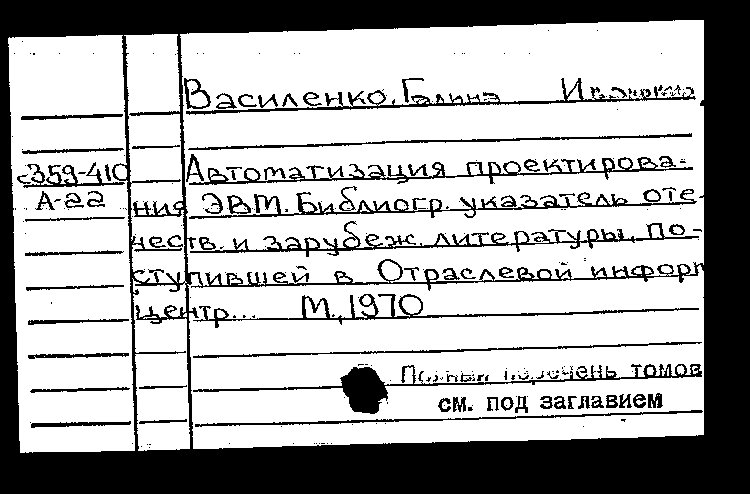 Василенко, Галина Ивановна,
с359-410 Автоматизация проектирова-
А-22 ния ЭВМ. Библиогр. указатель оте-
честв. и зарубеж. литературы, по-
ступившей в Отраслевой информ
центр... М., 1970
Полный перечень томов
см. под заглавием